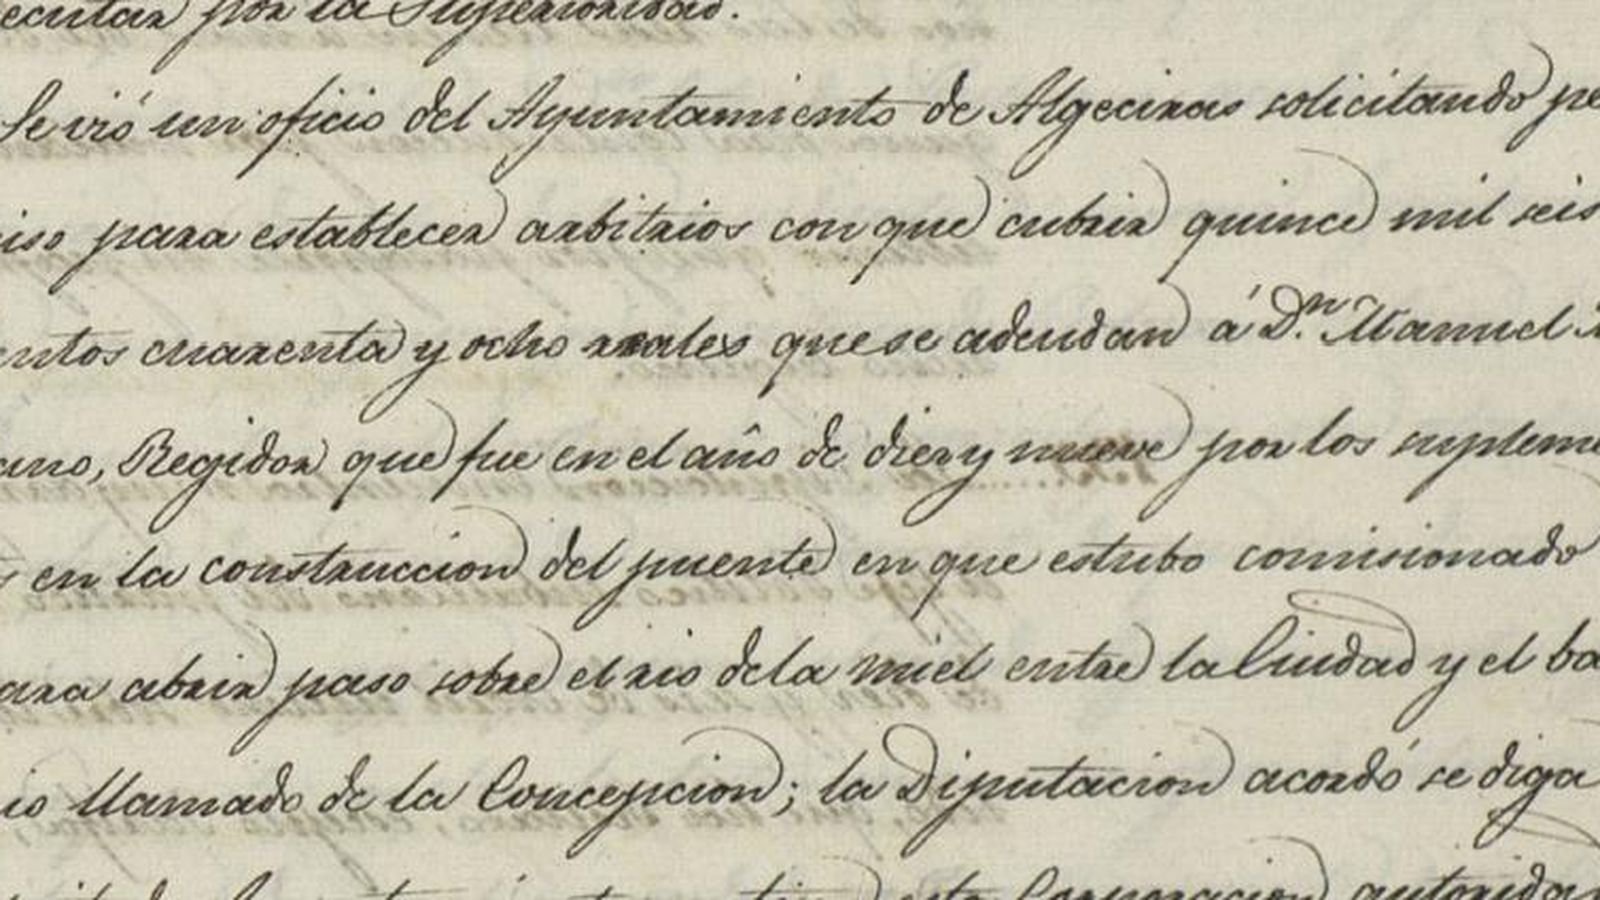 ecutar por la Superioridad.
Se vió un oficio del Ayuntamiento de Algeciras solicitando pe
iso para establecer arbitrios con que cubrir quince mil seis
entos cuarenta y ocho reales que se adeudan á D.n Manuel
ano, Regidor que fue en el año de diez y nueve por los supleme
s en la construccion del puente en que estubo comisionado
ara abrir paso sobre el rio de la miel entre la Ciudad y el ba
io llamado de la Concepcion; la Diputacion acordó se diga
esta Corporacion autorida